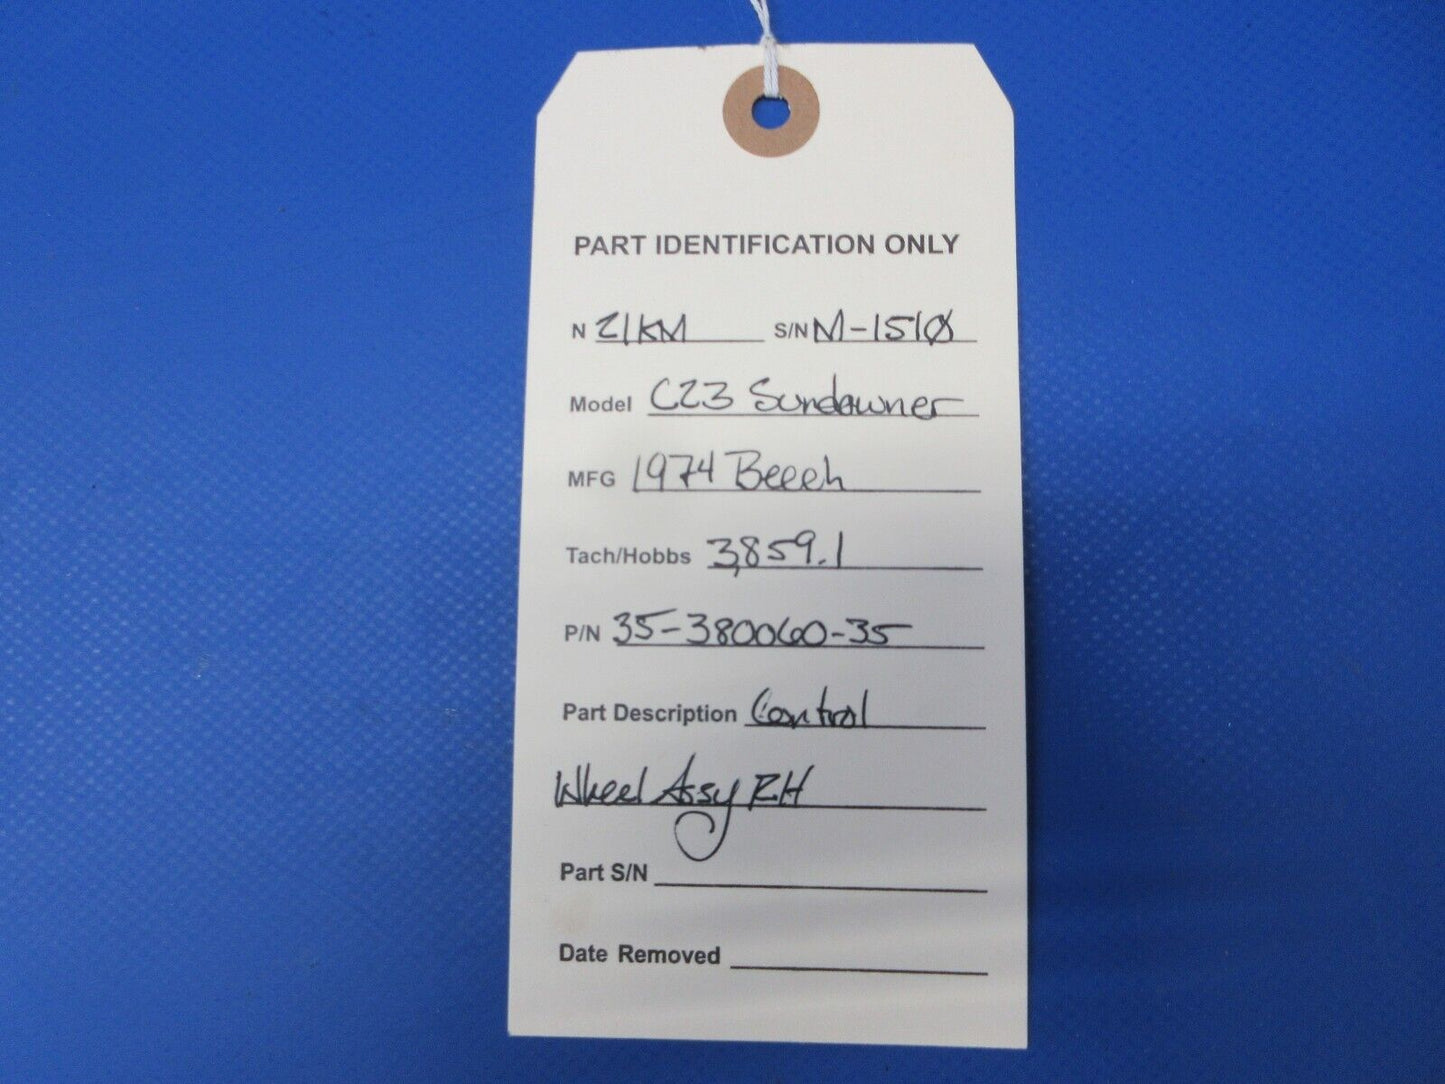 PART IDENTIFICATION ONLY
N 21KM S/N M-1510
Model C23 Sundowner
MFG 1974 Beech
Tach/Hobbs 3,859.1
P/N 35-380060-35
Part Description Control
Wheel Assy RH
Part S/N
Date Removed